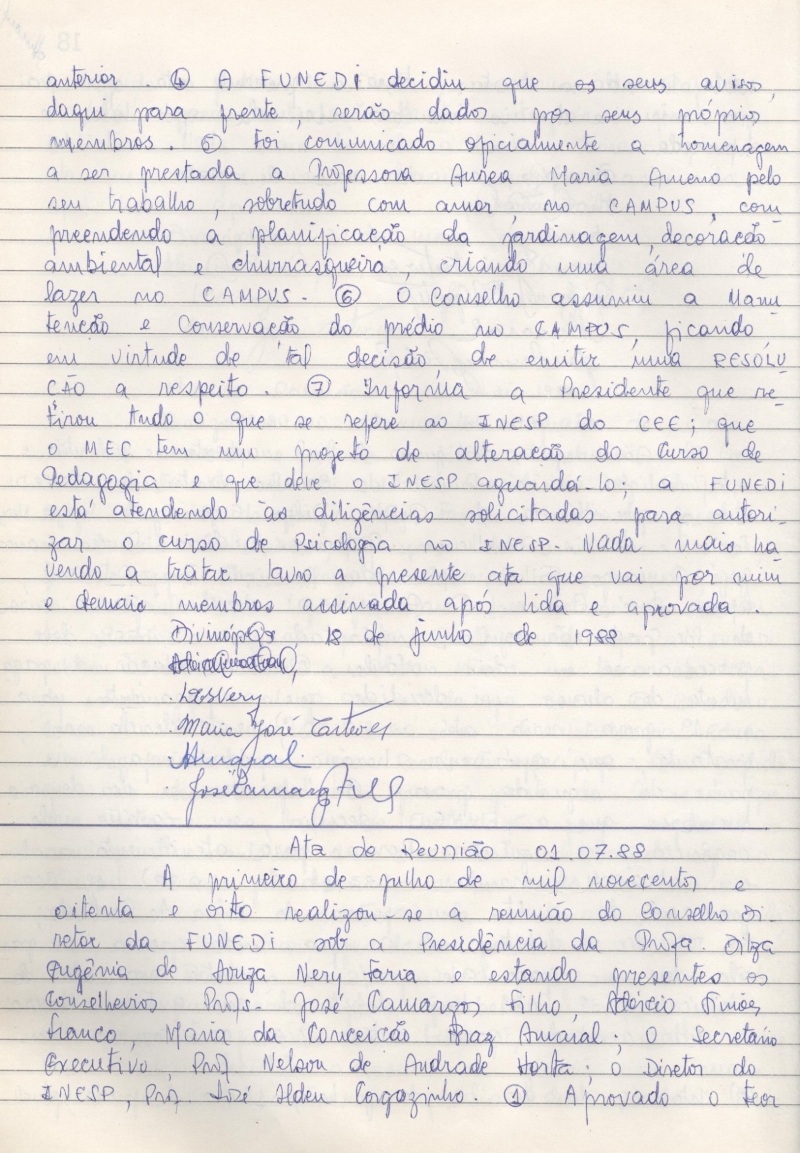 anterior. ④ A FUNEDI decidiu que os seus avisos,
daqui para frente, serão dados por seus próprios
membros. ⑤ Foi comunicado oficialmente a homenagem
a ser prestada a Professora Aurea Maria Ameno pelo
seu trabalho, sobretudo com amor, no CAMPUS, com-
preendendo a planificação da jardinagem, decoração
ambiental e churrasqueira, criando uma área de
lazer no CAMPUS. ⑥ O Conselho assumiu a Manu-
tenção e Conservação do prédio no CAMPUS, ficando
em virtude de tal decisão, de emitir uma RESOLU-
ÇÃO a respeito. ⑦ Informa a Presidente que re-
tirou tudo o que se refere ao INESP do CEE; que
o MEC tem um projeto de alteração do Curso de
Pedagogia e que deve o INESP aguardá-lo; a FUNEDI
está atendendo às diligências solicitadas para autori-
zar o curso de Psicologia no INESP. Nada mais ha-
vendo a tratar lavro a presente ata que vai por mim
e demais membros assinada após lida e aprovada.
Divinópolis, 18 de junho de 1988
Maria José Esteves
Amaral.
José Camargos Filho
Ata de Reunião 01.07.88
A primeiro de julho de mil novecentos e
oitenta e oito realizou-se a reunião do Conselho Di-
retor da FUNEDI sob a Presidência da Profa. Dilza
Eugênia de Souza Nery Faria e estando presentes os
Conselheiros Profs. José Camargos Filho, Adércio Simões
Franco, Maria da Conceição Braz Amaral; o Secretário
Executivo, Prof Nelson de Andrade Horta; o Diretor do
INESP, Prof. José Alden Corgozinho. ① Aprovado o teor